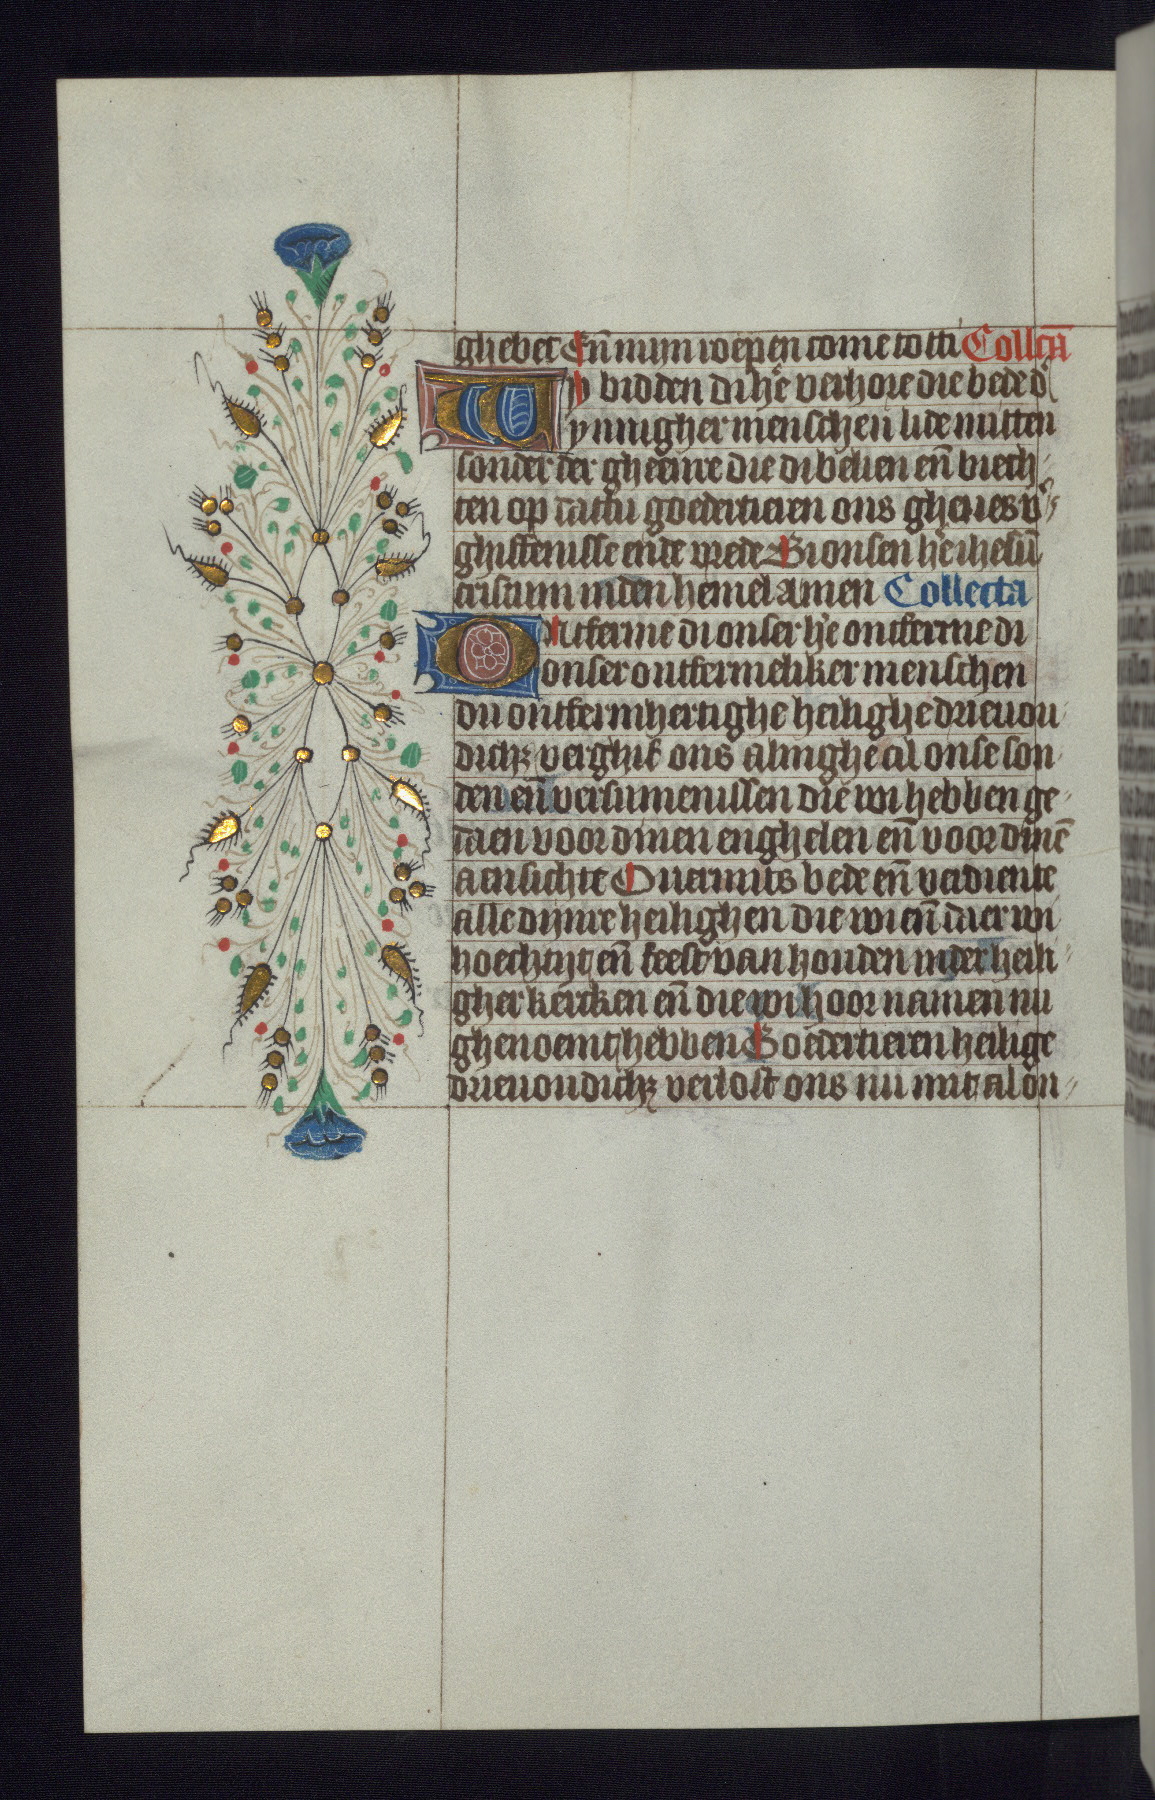 ghebet Eñ mijn roepen come tot ti Collcā
Wy bidden di he verhore die bede d
ynnigher menschen lide mitten
sonder der gheenre die di belien eñ biech
ten op dattu goedertieren ons gheues v
ghiffenisse ende vrede Bi onsen he ihesū
cristum in den hemel amen Collecta
Ontferme di onser he ontferme di
onser ontfermeliker menschen
du ontfermhertighe heilighe drieuou
dich verghif ons alinghe al onse son
den eñ versumenissen die wi hebben ge
daen voor dinen enghelen eñ voor dinē
aensichte Ouermits bede eñ verdiente
alle dijnre heilighen die wi eñ daer wi
hoechtijt eñ feest van houden in der heili
gher kercken eñ die wi hoor namen nu
ghenoemt hebben Goedertieren heilige
drieuoudich verlost ons nu mit al on